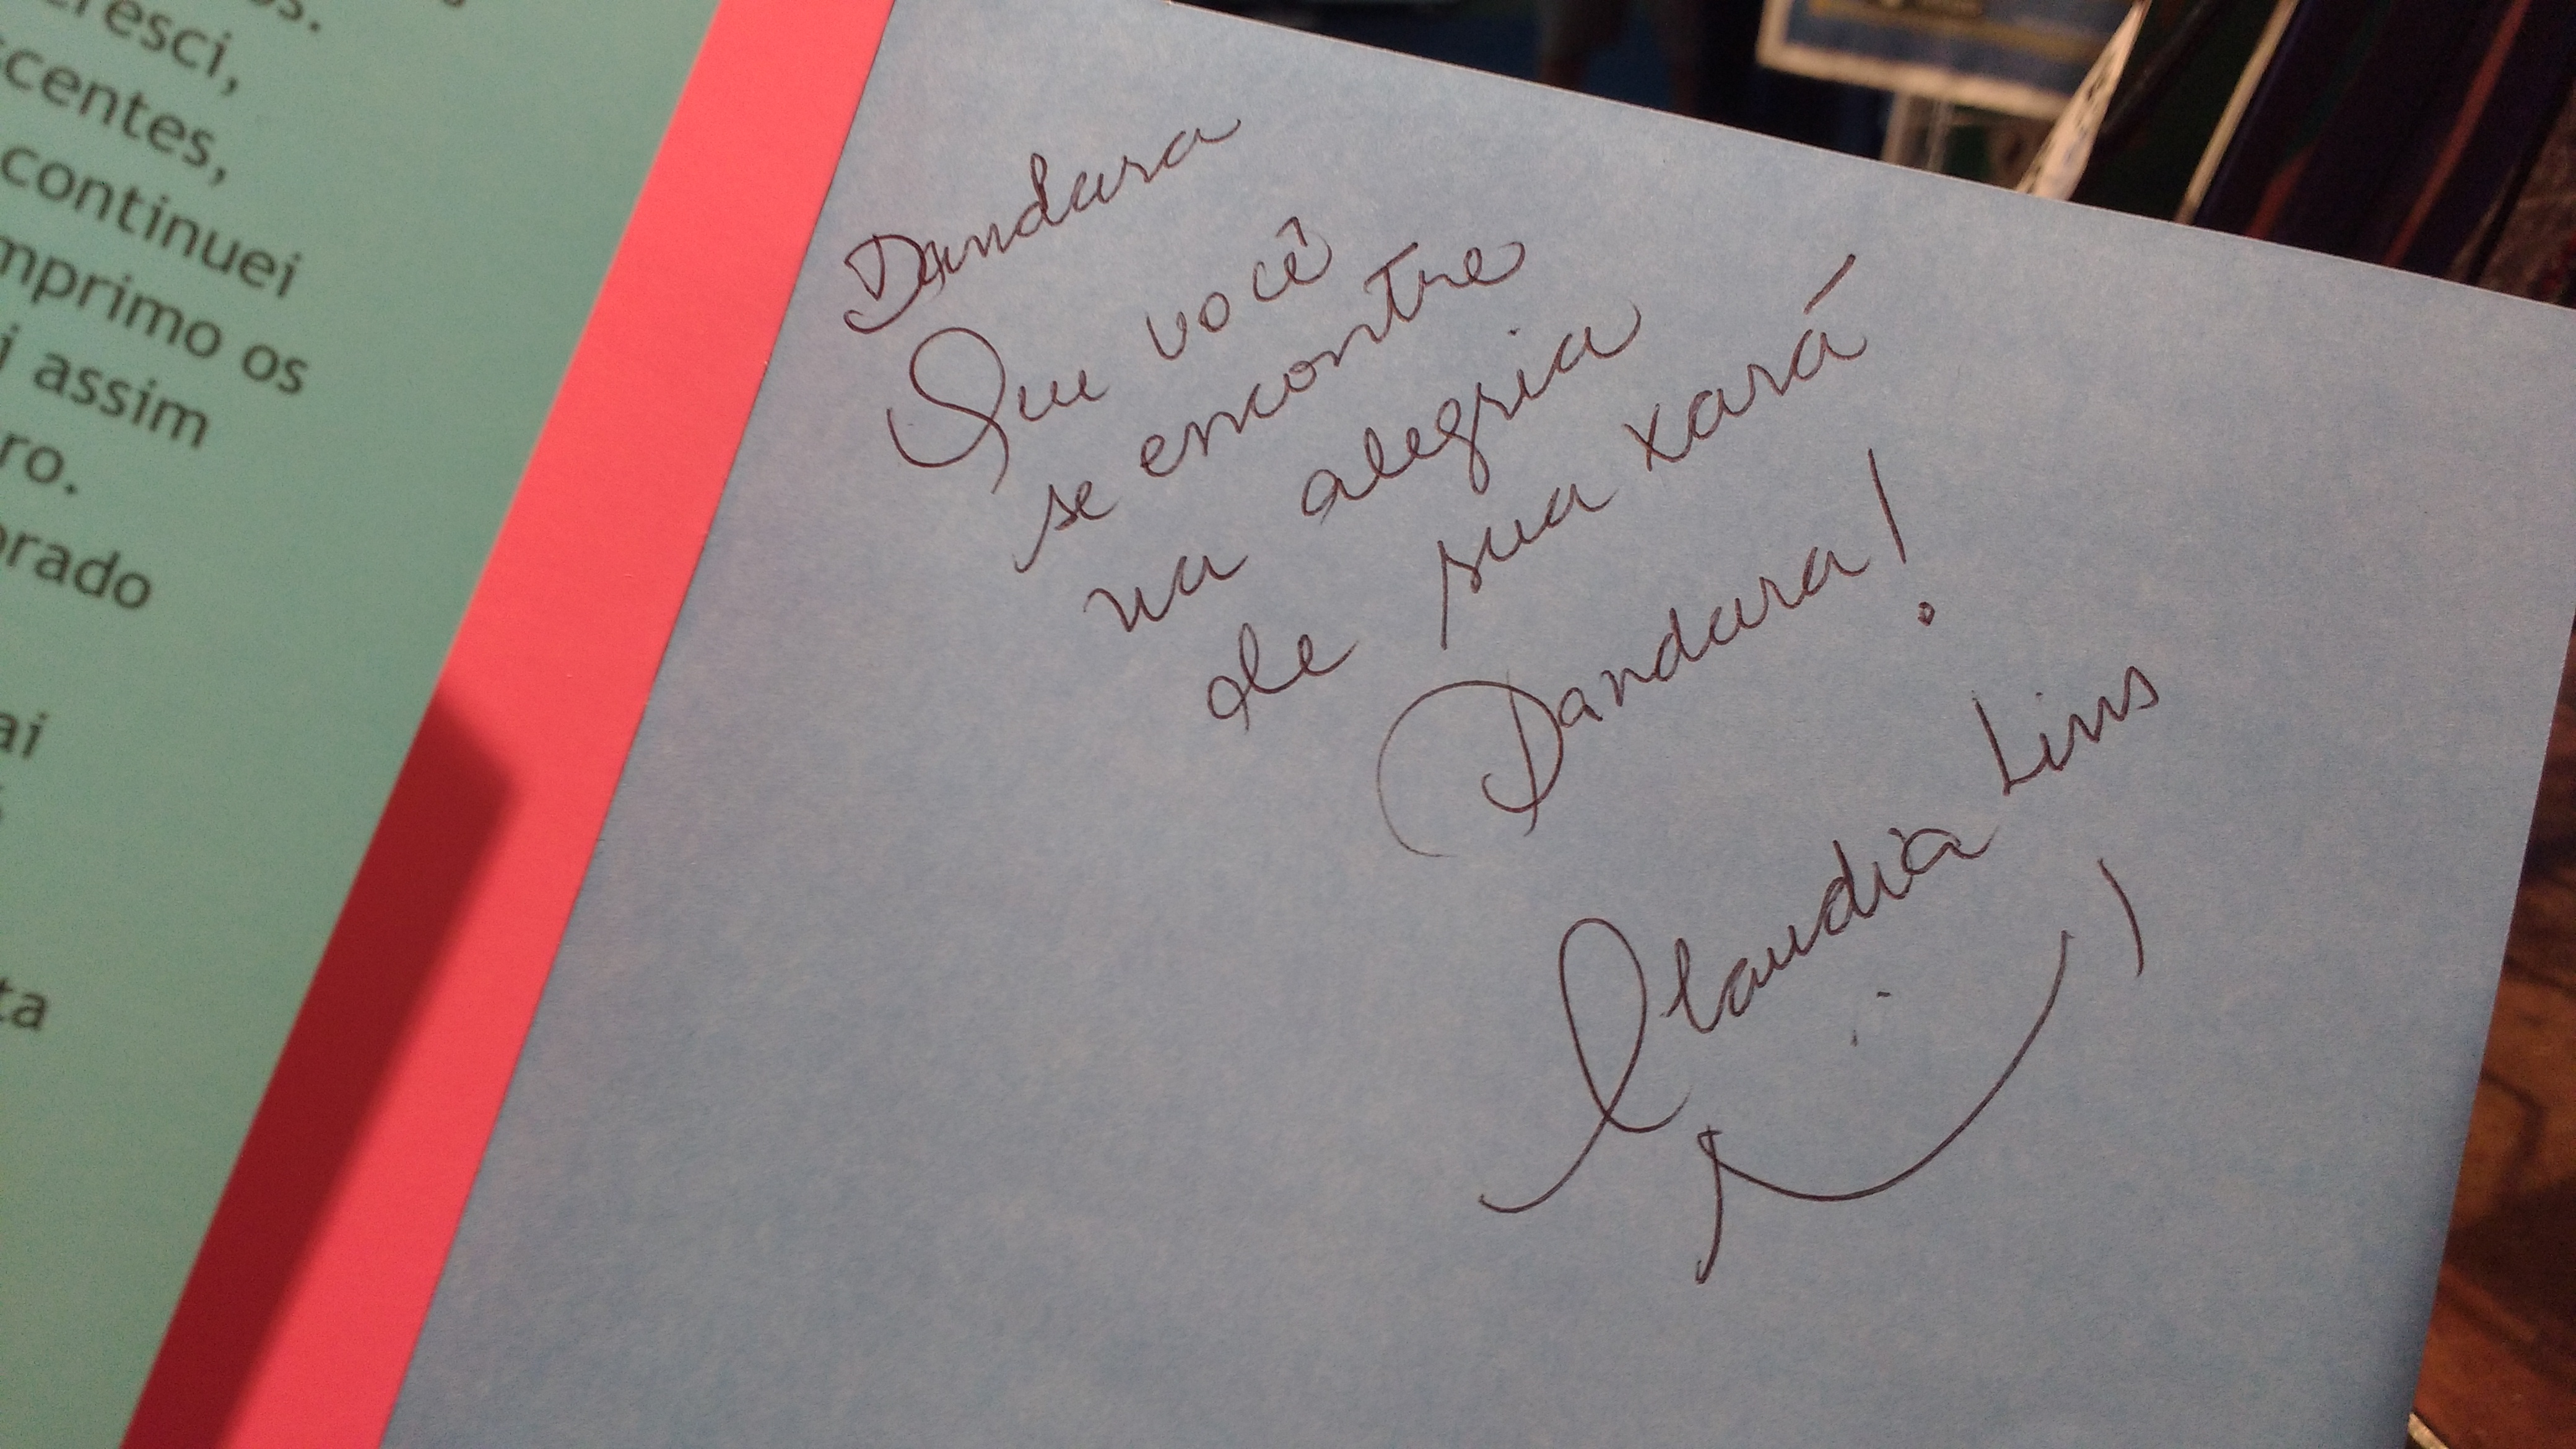 resci,
scentes,
continuei
mprimo os
i assim
ro.
orado
ai
ta
Dandara
Que você
se encontre
na alegria
de sua xará
Dandara!
Claudia Lins